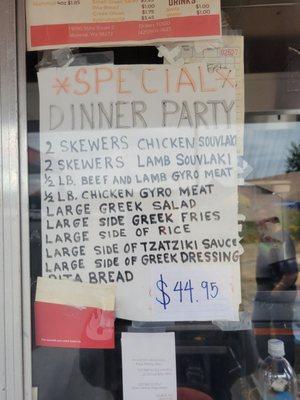 DRINKS
$1.00
$1.00
$1.75
$3.45
*SPECIAL*
DINNER PARTY
2 SKEWERS CHICKEN SOUVLAKI
2 SKEWERS LAMB SOUVLAKI
½ LB. BEEF AND LAMB GYRO MEAT
½ LB. CHICKEN GYRO MEAT
LARGE GREEK SALAD
LARGE SIDE GREEK FRIES
LARGE SIDE OF RICE
LARGE SIDE OF TZATZIKI SAUCE
LARGE SIDE OF GREEK DRESSING
PITA BREAD
$44.95